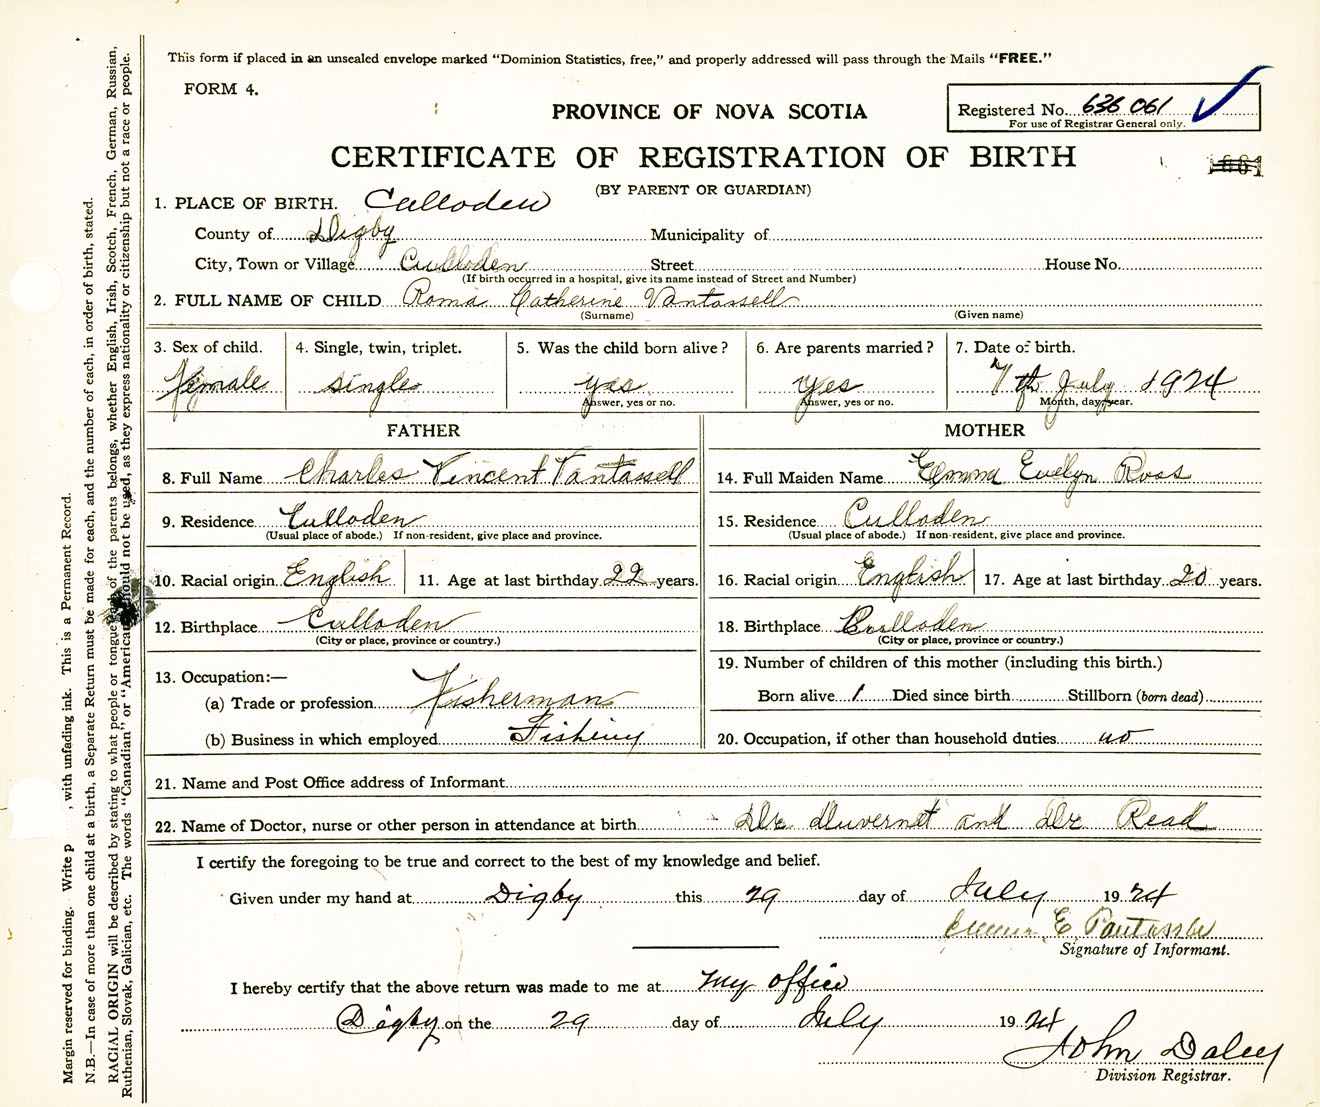 This form if placed in an unsealed envelope marked “Dominion Statistics, free,” and properly addressed will pass through the Mails “FREE.”
FORM 4.
PROVINCE OF NOVA SCOTIA
Registered No. 636 061
For use of Registrar General only.
CERTIFICATE OF REGISTRATION OF BIRTH
(BY PARENT OR GUARDIAN)
1. PLACE OF BIRTH. Culloden
County of Digby Municipality of
City, Town or Village Culloden Street House No.
(If birth occurred in a hospital, give its name instead of Street and Number)
2. FULL NAME OF CHILD Roma Catherine Vantassell
(Surname) (Given name)
3. Sex of child. 4. Single, twin, triplet. 5. Was the child born alive? 6. Are parents married? 7. Date of birth.
female single yes yes 7th July 1924
Answer, yes or no. Answer, yes or no. Month, day, year.
FATHER MOTHER
8. Full Name Charles Vincent Vantassell 14. Full Maiden Name Emma Evelyn Ross
9. Residence Culloden 15. Residence Culloden
(Usual place of abode.) If non-resident, give place and province. (Usual place of abode.) If non-resident, give place and province.
10. Racial origin English 11. Age at last birthday 22 years. 16. Racial origin English 17. Age at last birthday 20 years.
12. Birthplace Culloden 18. Birthplace Culloden
(City or place, province or country.) (City or place, province or country.)
13. Occupation:— 19. Number of children of this mother (including this birth.)
(a) Trade or profession Fisherman Born alive 1 Died since birth Stillborn (born dead)
(b) Business in which employed Fishing 20. Occupation, if other than household duties no
21. Name and Post Office address of Informant
22. Name of Doctor, nurse or other person in attendance at birth Dr Duvernet and Dr Read
I certify the foregoing to be true and correct to the best of my knowledge and belief.
Given under my hand at Digby this 29 day of July 1924
Emma E Vantassell
Signature of Informant.
I hereby certify that the above return was made to me at my office
Digby on the 29 day of July 1924
John Daley
Division Registrar.
Margin reserved for binding. Write p , with unfading ink. This is a Permanent Record.
N.B.—In case of more than one child at a birth, a Separate Return must be made for each, and the number of each, in order of birth, stated.
RACIAL ORIGIN will be described by stating to what people or tongue of the parents belongs, whether English, Irish, Scotch, French, German, Russian,
Ruthenian, Slovak, Galician, etc. The words “Canadian” or “American” should not be used, as they express nationality or citizenship but not a race or people.